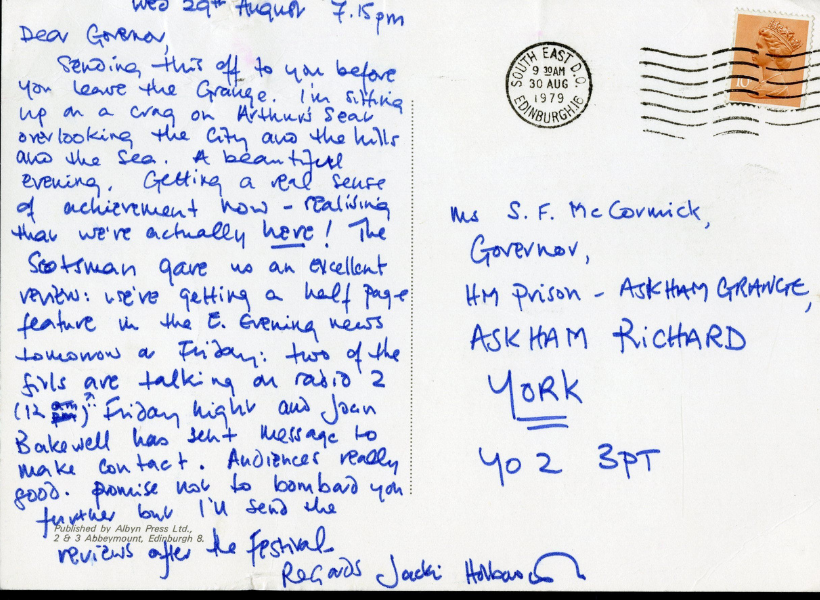 Wed 29th August 7.15pm
Dear Governor,
Sending this off to you before
you leave the Grange. I'm sitting
up on a crag on Arthur's Seat
overlooking the City and the hills
and the Sea. A beautiful
evening. Getting a real sense
of achievement now - realising
that we're actually here! The
Scotsman gave us an excellent
review: we're getting a half page
feature in the E. Evening news
tomorrow a Friday: two of the
girls are talking on radio 2
(12 ) Friday night and Joan
Bakewell has sent message to
make contact. Audiences really
good. promise not to bombard you
further but I'll send the
Published by Albyn Press Ltd.,
2 & 3 Abbeymount, Edinburgh 8.
reviews after the Festival
Regards Jacki
SOUTH EAST D.O.
9 30AM
30 AUG
1979
EDINBURGH
10
Ms S. F. McCormick,
Governor,
HM Prison - ASKHAM GRANGE,
ASKHAM RICHARD
YORK
YO2 3PT